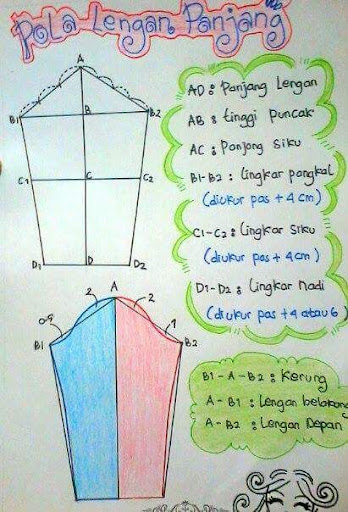 Pola Lengan Panjang
A
B1
B
B2
C1
C
C2
D1
D
D2
AD : Panjang Lengan
AB : tinggi Puncak
AC : Panjang Siku
B1-B2 : Lingkar pangkal
(diukur pas + 4 cm)
C1-C2 : Lingkar Siku
(diukur pas + 4 cm)
D1-D2 : Lingkar nadi
(diukur pas + 4 atau 6)
A
2
2
0.5
1
B1
B2
B1 - A - B2 : Kerung
A - B1 : Lengan belakang
A - B2 : Lengan Depan